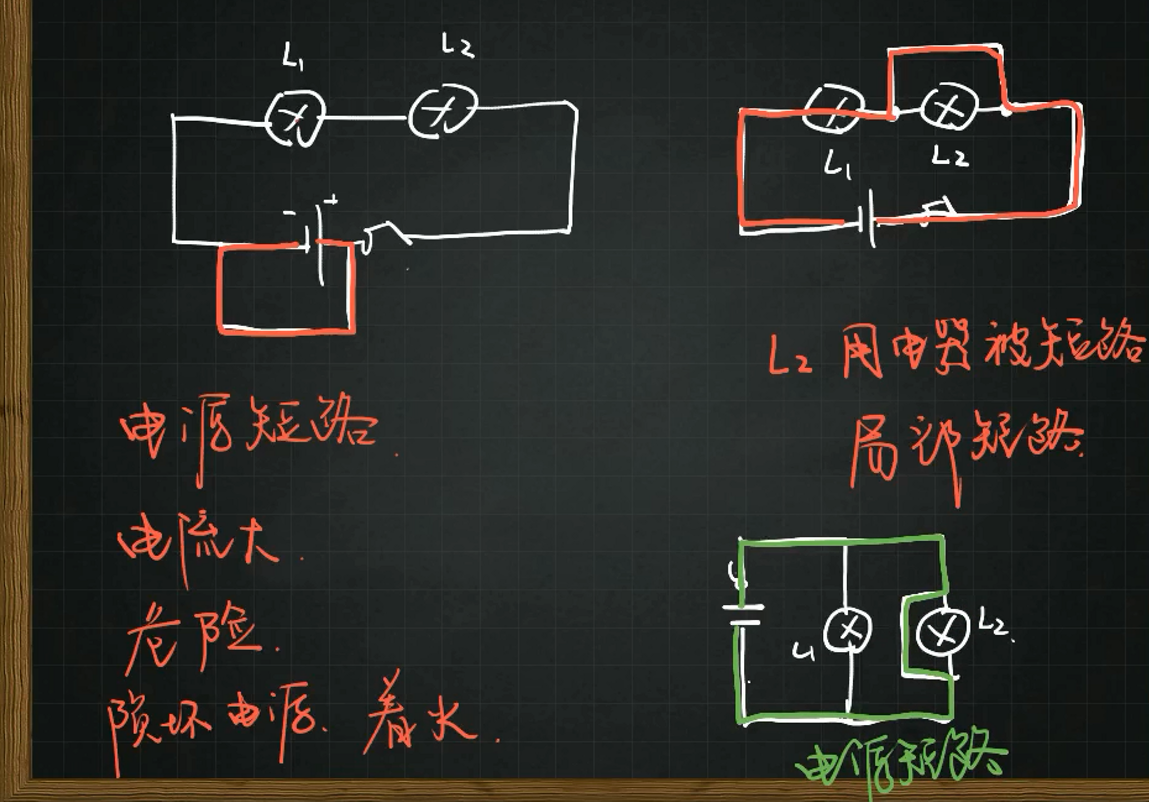 L₁ L₂
- +
电源短路.
电流大.
危险.
损坏电源、着火.
L₁ L₂
L₂ 用电器被短路
局部短路.
L₁ L₂.
电源短路